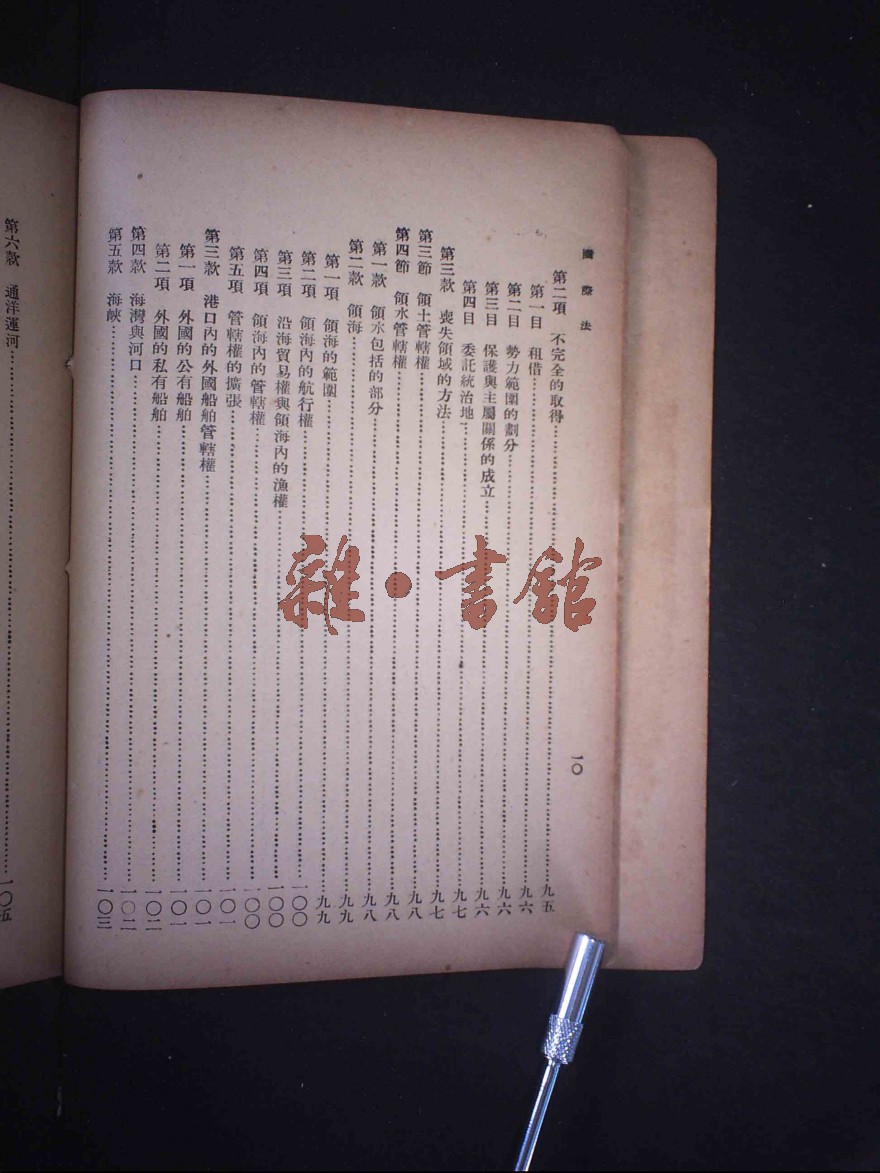 國際法
一〇
第二項　不完全的取得……九五
第一目　租借……九六
第二目　勢力範圍的劃分……九六
第三目　保護與主屬關係的成立……九六
第四目　委託統治地……九七
第三款　喪失領域的方法……九七
第三節　領土管轄權……九八
第四節　領水管轄權……九八
第一款　領水包括的部分……九八
第二款　領海……九九
第一項　領海的範圍……九九
第二項　領海內的航行權……一〇〇
第三項　沿海貿易權與領海內的漁權……一〇〇
第四項　領海內的管轄權……一〇〇
第五項　管轄權的擴張……一〇一
第三款　港口內的外國船舶管轄權……一〇一
第一項　外國的公有船舶……一〇一
第二項　外國的私有船舶……一〇二
第四款　海灣與河口……一〇二
第五款　海峽……一〇三
第六款　通洋運河……一〇五
雜·書館